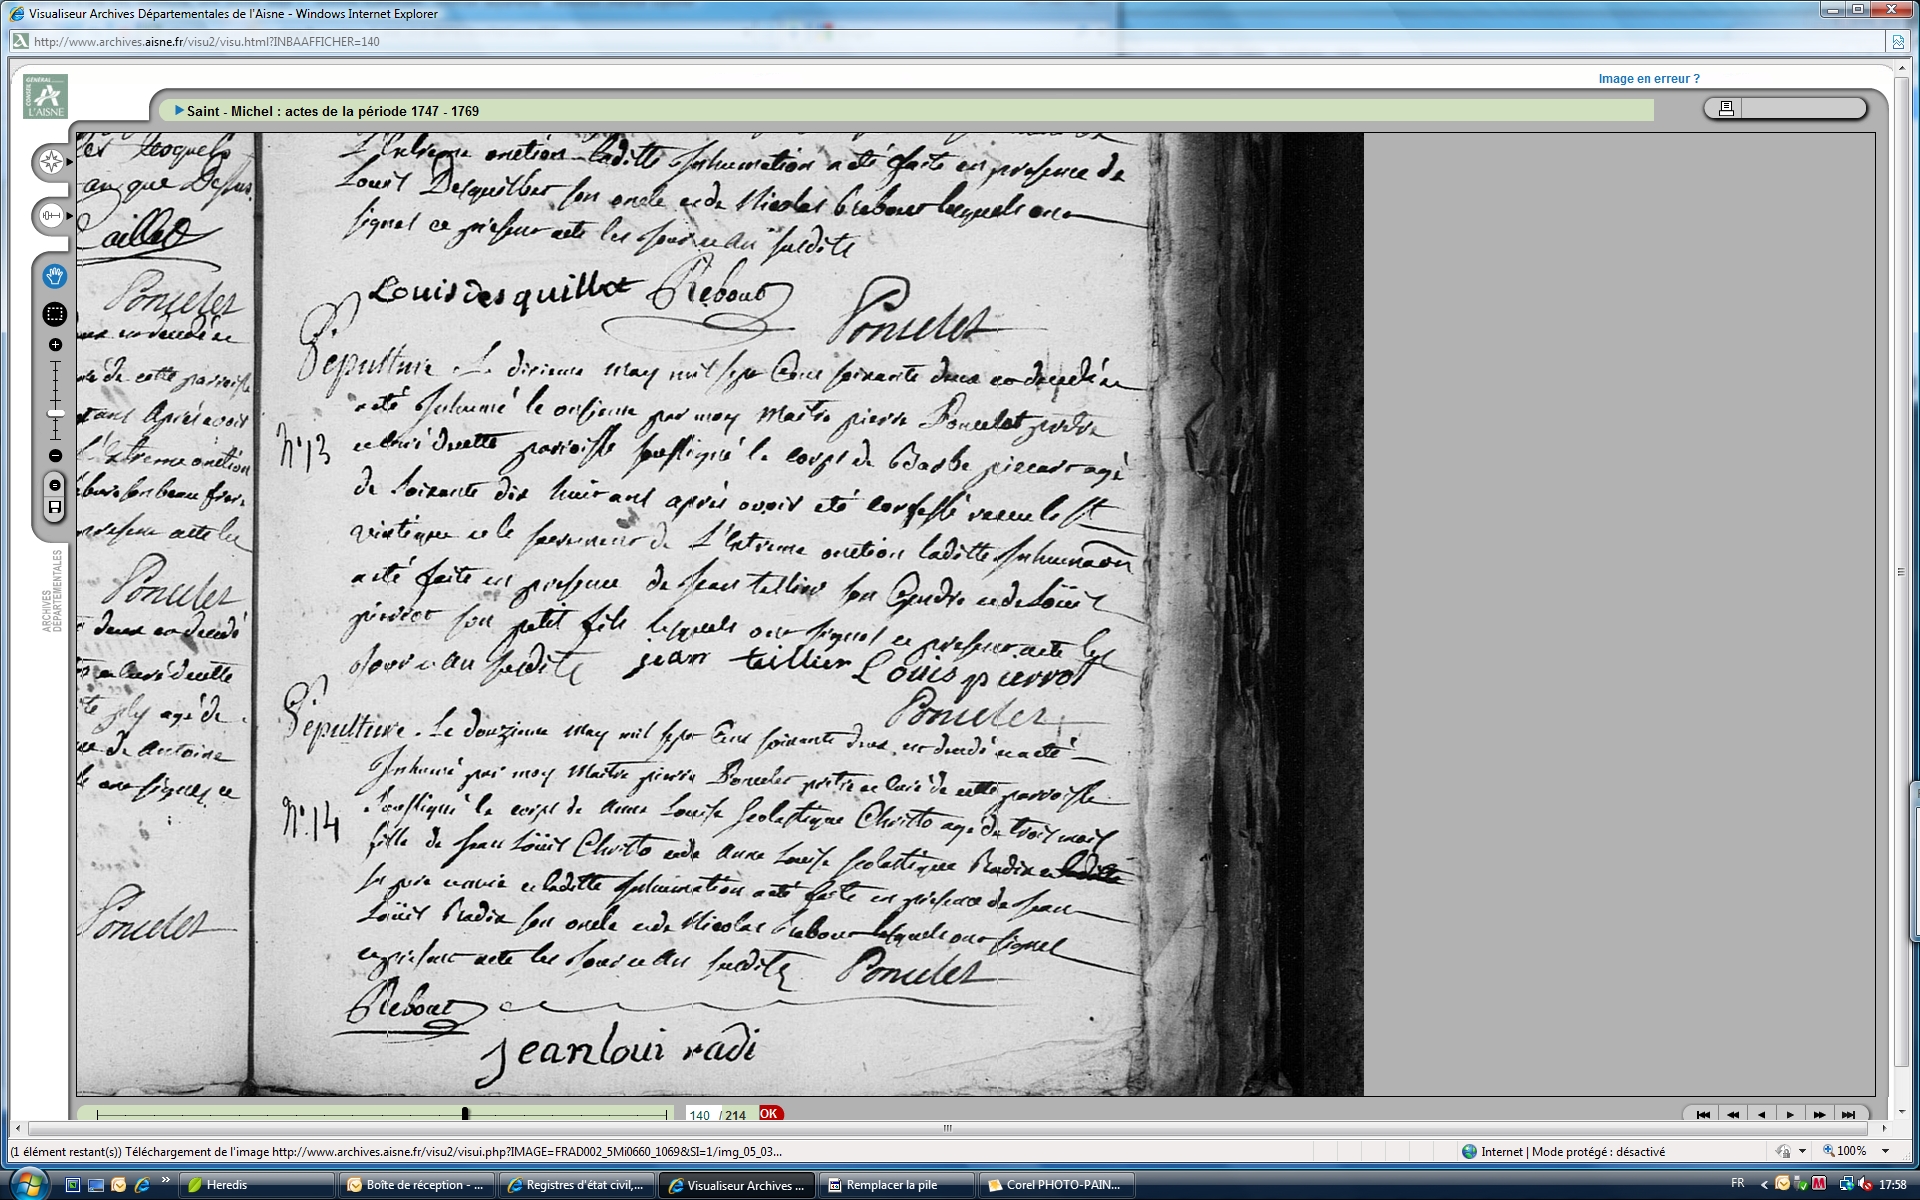 Visualiseur Archives Départementales de l'Aisne - Windows Internet Explorer
http://www.archives.aisne.fr/visu2/visu.html?INBAAFFICHER=140
Image en erreur ?
GÉNÉRAL
CONSEIL
L'AISNE
Saint - Michel : actes de la période 1747 - 1769
ARCHIVES
DEPARTEMENTALES
L'Extreme onction laditte Inhumation a eté faite en presence de
Louis Desquilbet son onele et de Nicolas Rebout lesquels ont
signés ce present acte les jour et an susdits
Louis des quillbet Rebout
Poncelet
Sépulture. Le dixieme may mil sept Cens soixante deux est decedé et
a eté Inhumé le onzieme par moy Maitre pierre Poncelet pretre
N° 13
et curé de cette parroisse soussigné le corps de Barbe pierrart agé
de soixante dix huit ans aprés avoir eté confessé receu le St
viatique et le sacrement de L'Extreme onction laditte Inhumation
a eté faite en presence de Jean tellier son Gendre et de Loüis
pierrot son petit fils lesquels ont signés ce present acte les
Jour et an susdits jean teillier Louis pierrot
Poncelet
Sépulture. Le douzieme may mil sept Cens soixante deux est decedé et a eté
Inhumé par moy Maitre pierre Poncelet pretre et curé de cette parroisse
N° 14
soussigné le corps de anne Louise Scolastique Christo agé de trois mois
fille de Jean Loüis Christo et de Anne Louise scolastique Radix
ses pere et mere et laditte Inhumation a eté faite en presence de Jean
Loüis Radix son onele et de Nicolas Rebout lesquels ont signés
ce present acte les jour et an susdits Poncelet
Rebout
jean loui radi
140 / 214 OK
(1 élément restant(s)) Téléchargement de l'image http://www.archives.aisne.fr/visu2/visui.php?IMAGE=FRAD002_5Mi0660_1069&SI=1/img_05_03...
Internet | Mode protégé : désactivé
100%
Heredis
Boîte de réception - ...
Registres d'état civil,...
Visualiseur Archives ...
Remplacer la pile
Corel PHOTO-PAIN...
FR
17:58